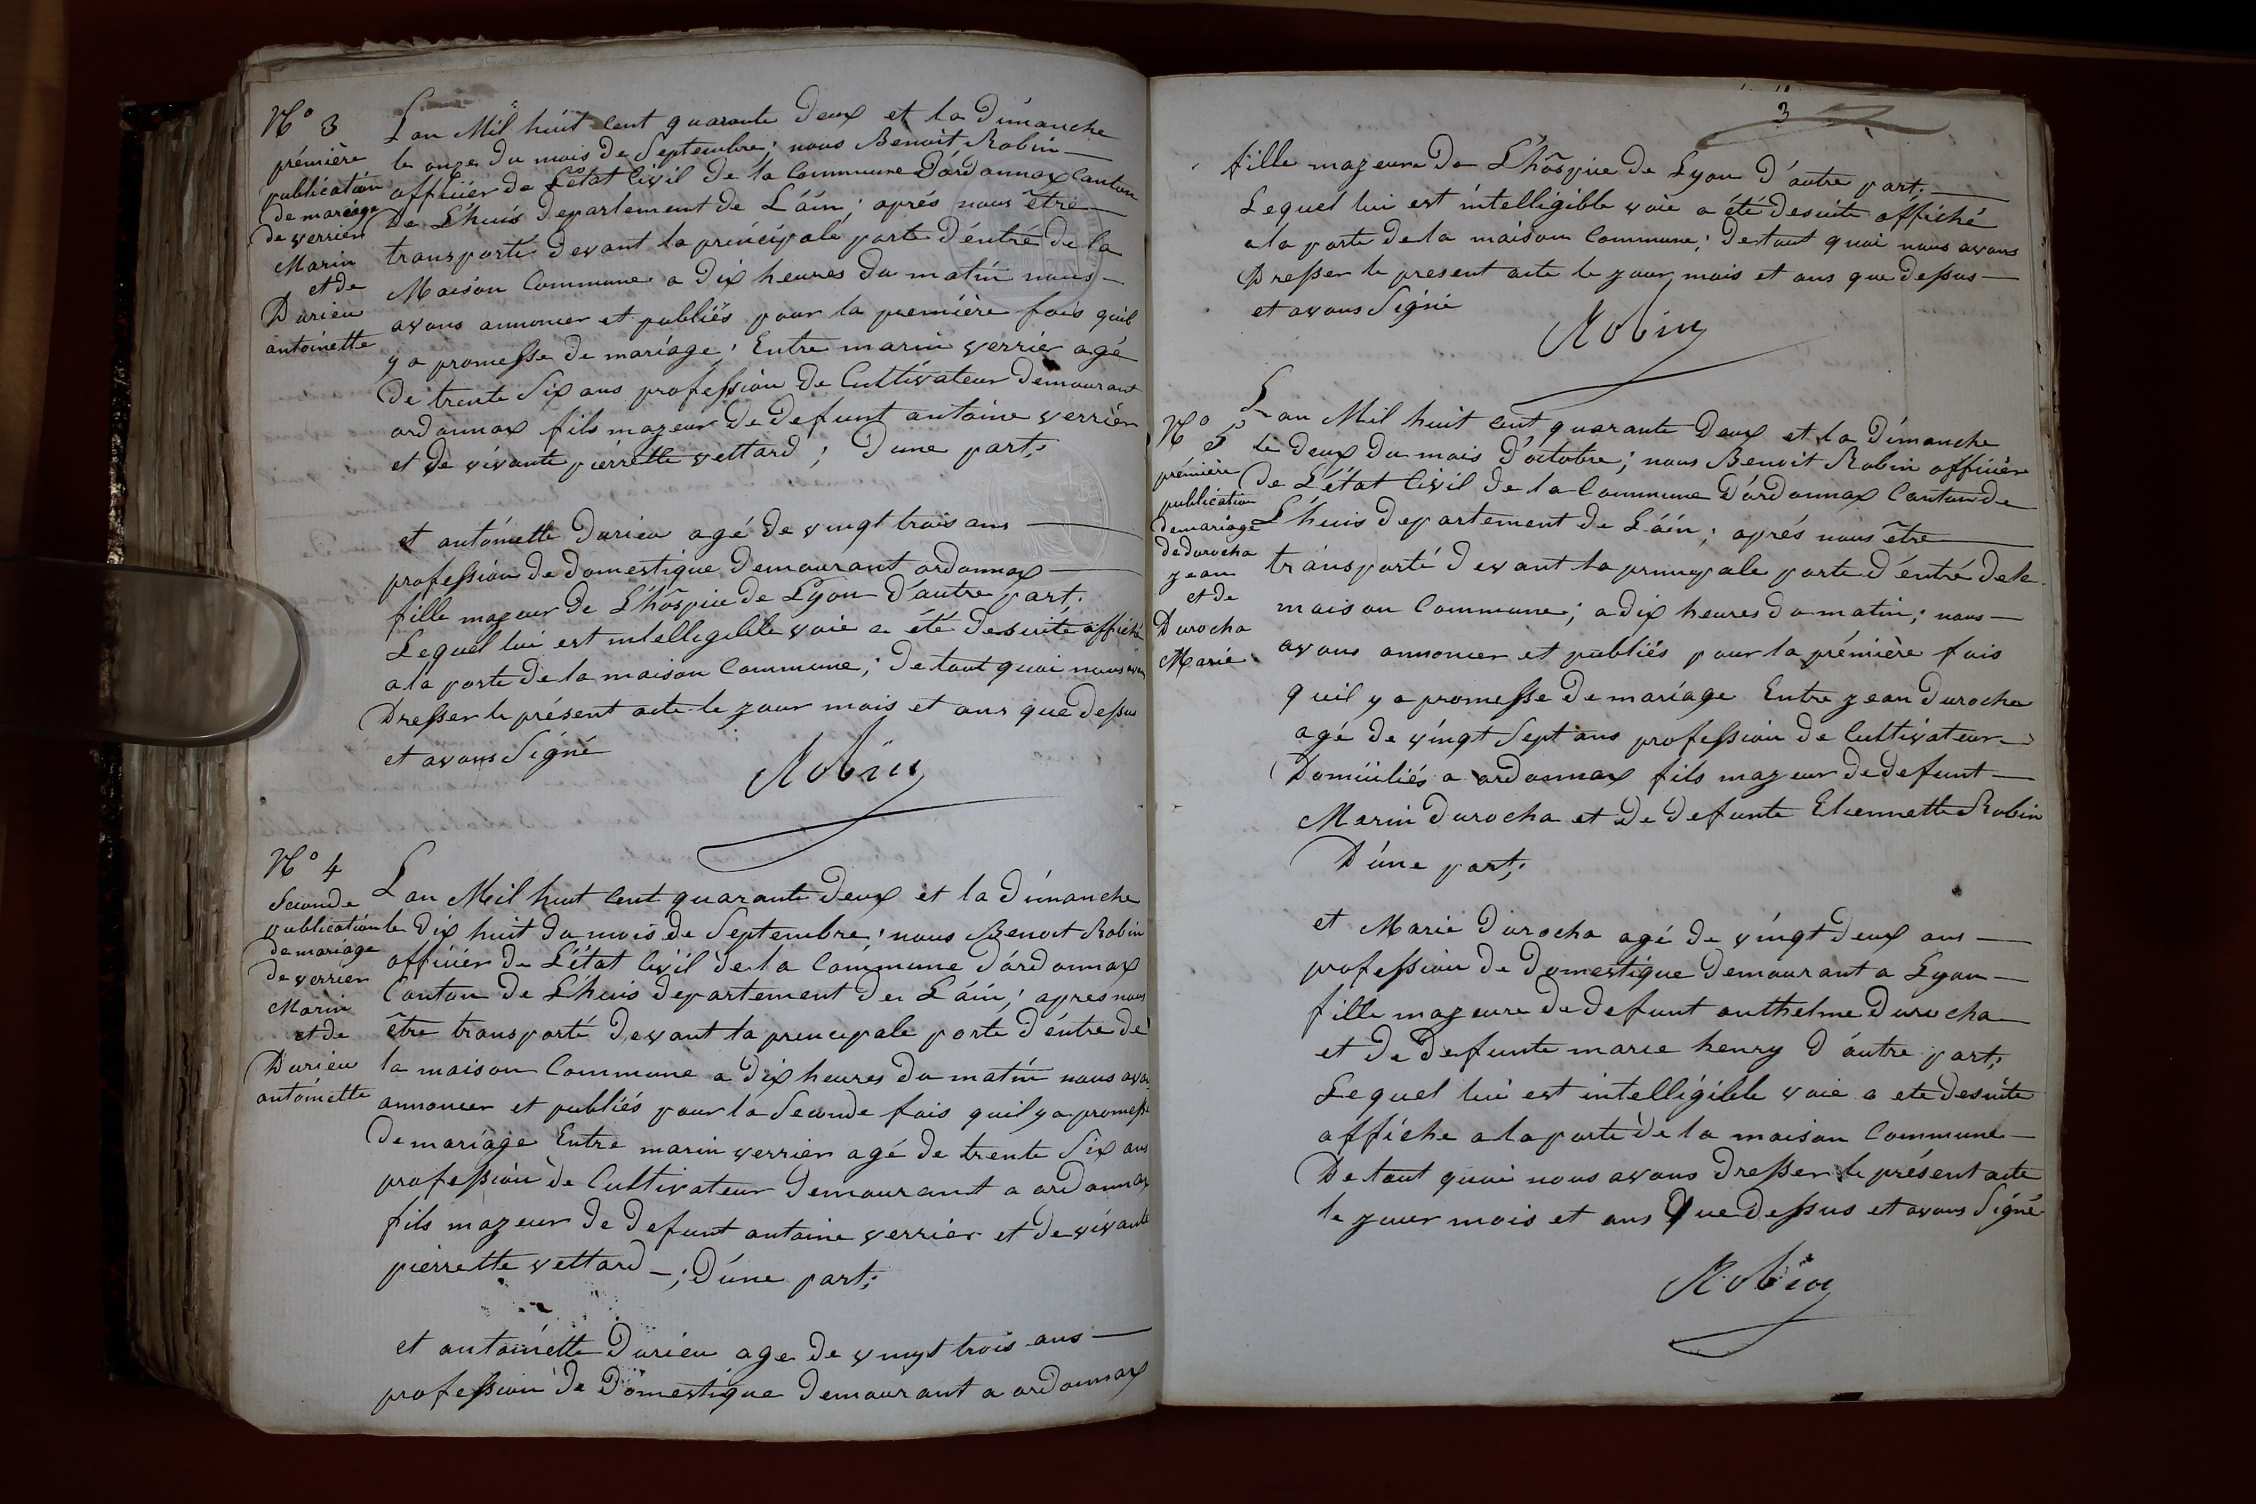 N° 3
prémière
publication
de mariage
de verrier
Marin
et de
Durieu
antoinette
Lan Mil huit Cent quarante Deux et la Dimanche
le onze du mois de Septembre; nous Benoit Robin
officier de L'état Civil de la Commune D'ardonnax Canton
De Lhuis Departement de L'áin; aprés nous être
transporté devant la principale porte D'éntré de la
Maison Commune a Dix heures du matin nous
avons annoncer et publiés pour la première fois quil
y a promesse de mariage; Entre marin verrier agé
De trente Six ans profession de Cultivateur Demourant
ardonnax fils mazeur De defunt antoine verrier
et de vivante pierrette vettard; D'une part;
et antoinette Durieu agé de vingt trois ans
profession de domestique Demourant ardonnax
fille mazeur de L'hôspice de Lyon D'autre part;
Lequel lui est intelligible voie a été desuite affiché
a la porte De la maison Commune; De tout quoi nous avons
Dresser le présent acte le zour mois et ans que Dessus
et avons Signé
Robin
N° 4
Seconde
publication
de mariage
De verrier
Marin
et de
Durieu
antoinette
Lan Mil huit Cent quarante Deux et la Dimanche
le Dix huit du mois de Septembre; nous Benoit Robin
officier de L'état Civil de la Commune D'ardonnax
Canton De Lhuis departement de L'áin; apres nous
être transporté Devant la principale porte D'éntre de
la maison Commune a Dix heures du matin nous avons
annoncer et publiés pour la Seconde fois quil y a promesse
De mariage Entre marin verrier agé de trente Six ans
profession de Cultivateur Demourant a ardonnax
fils mazeur de defunt antoine verrier et de vivante
pierrette vettard; D'une part;
et antoinette Durieu age de vingt trois ans
profession de Domestique Demourant a ardonnax
3
fille mazeure de L'hôspice de Lyon D'autre part;
Lequel lui est intelligible voie a été desuite affiché
a la porte de la maison Commune; De tout quoi nous avons
Dresser le present acte le zour mois et ans que dessus
et avons Signé
Robin
N° 5
prémière
publication
de mariage
de durocha
zean
et de
Durocha
Marie
Lan Mil huit Cent quarante Deux et la Dimanche
le Deux du mois d'octobre; nous Benoit Robin officier
De L'état Civil de la Commune D'ardonnax Canton de
Lhuis departement de L'áin; aprés nous être
transporté Devant la principale porte D'éntré de la
maison Commune; a dix heures du matin; nous
avons annoncer et publiés pour la première fois
quil y a promesse de mariage Entre zean Durocha
agé de vingt Sept ans profession de Cultivateur
Domiciliés a ardonnax fils mazeur de defunt
Marin Durocha et de Defunte Etiennette Robin
D'une part;
et Marie Durocha agé de vingt Deux ans
profession de Domestique Demourant a Lyon
fille mazeure de defunt anthelme Durocha
et de Defunte marie henry D'autre part;
Lequel lui est intelligible voie a ete desuite
affiche a la porte de la maison Commune
De tout quoi nous avons Dresser le présent acte
le zour mois et ans Que Dessus et avons Signé
Robin